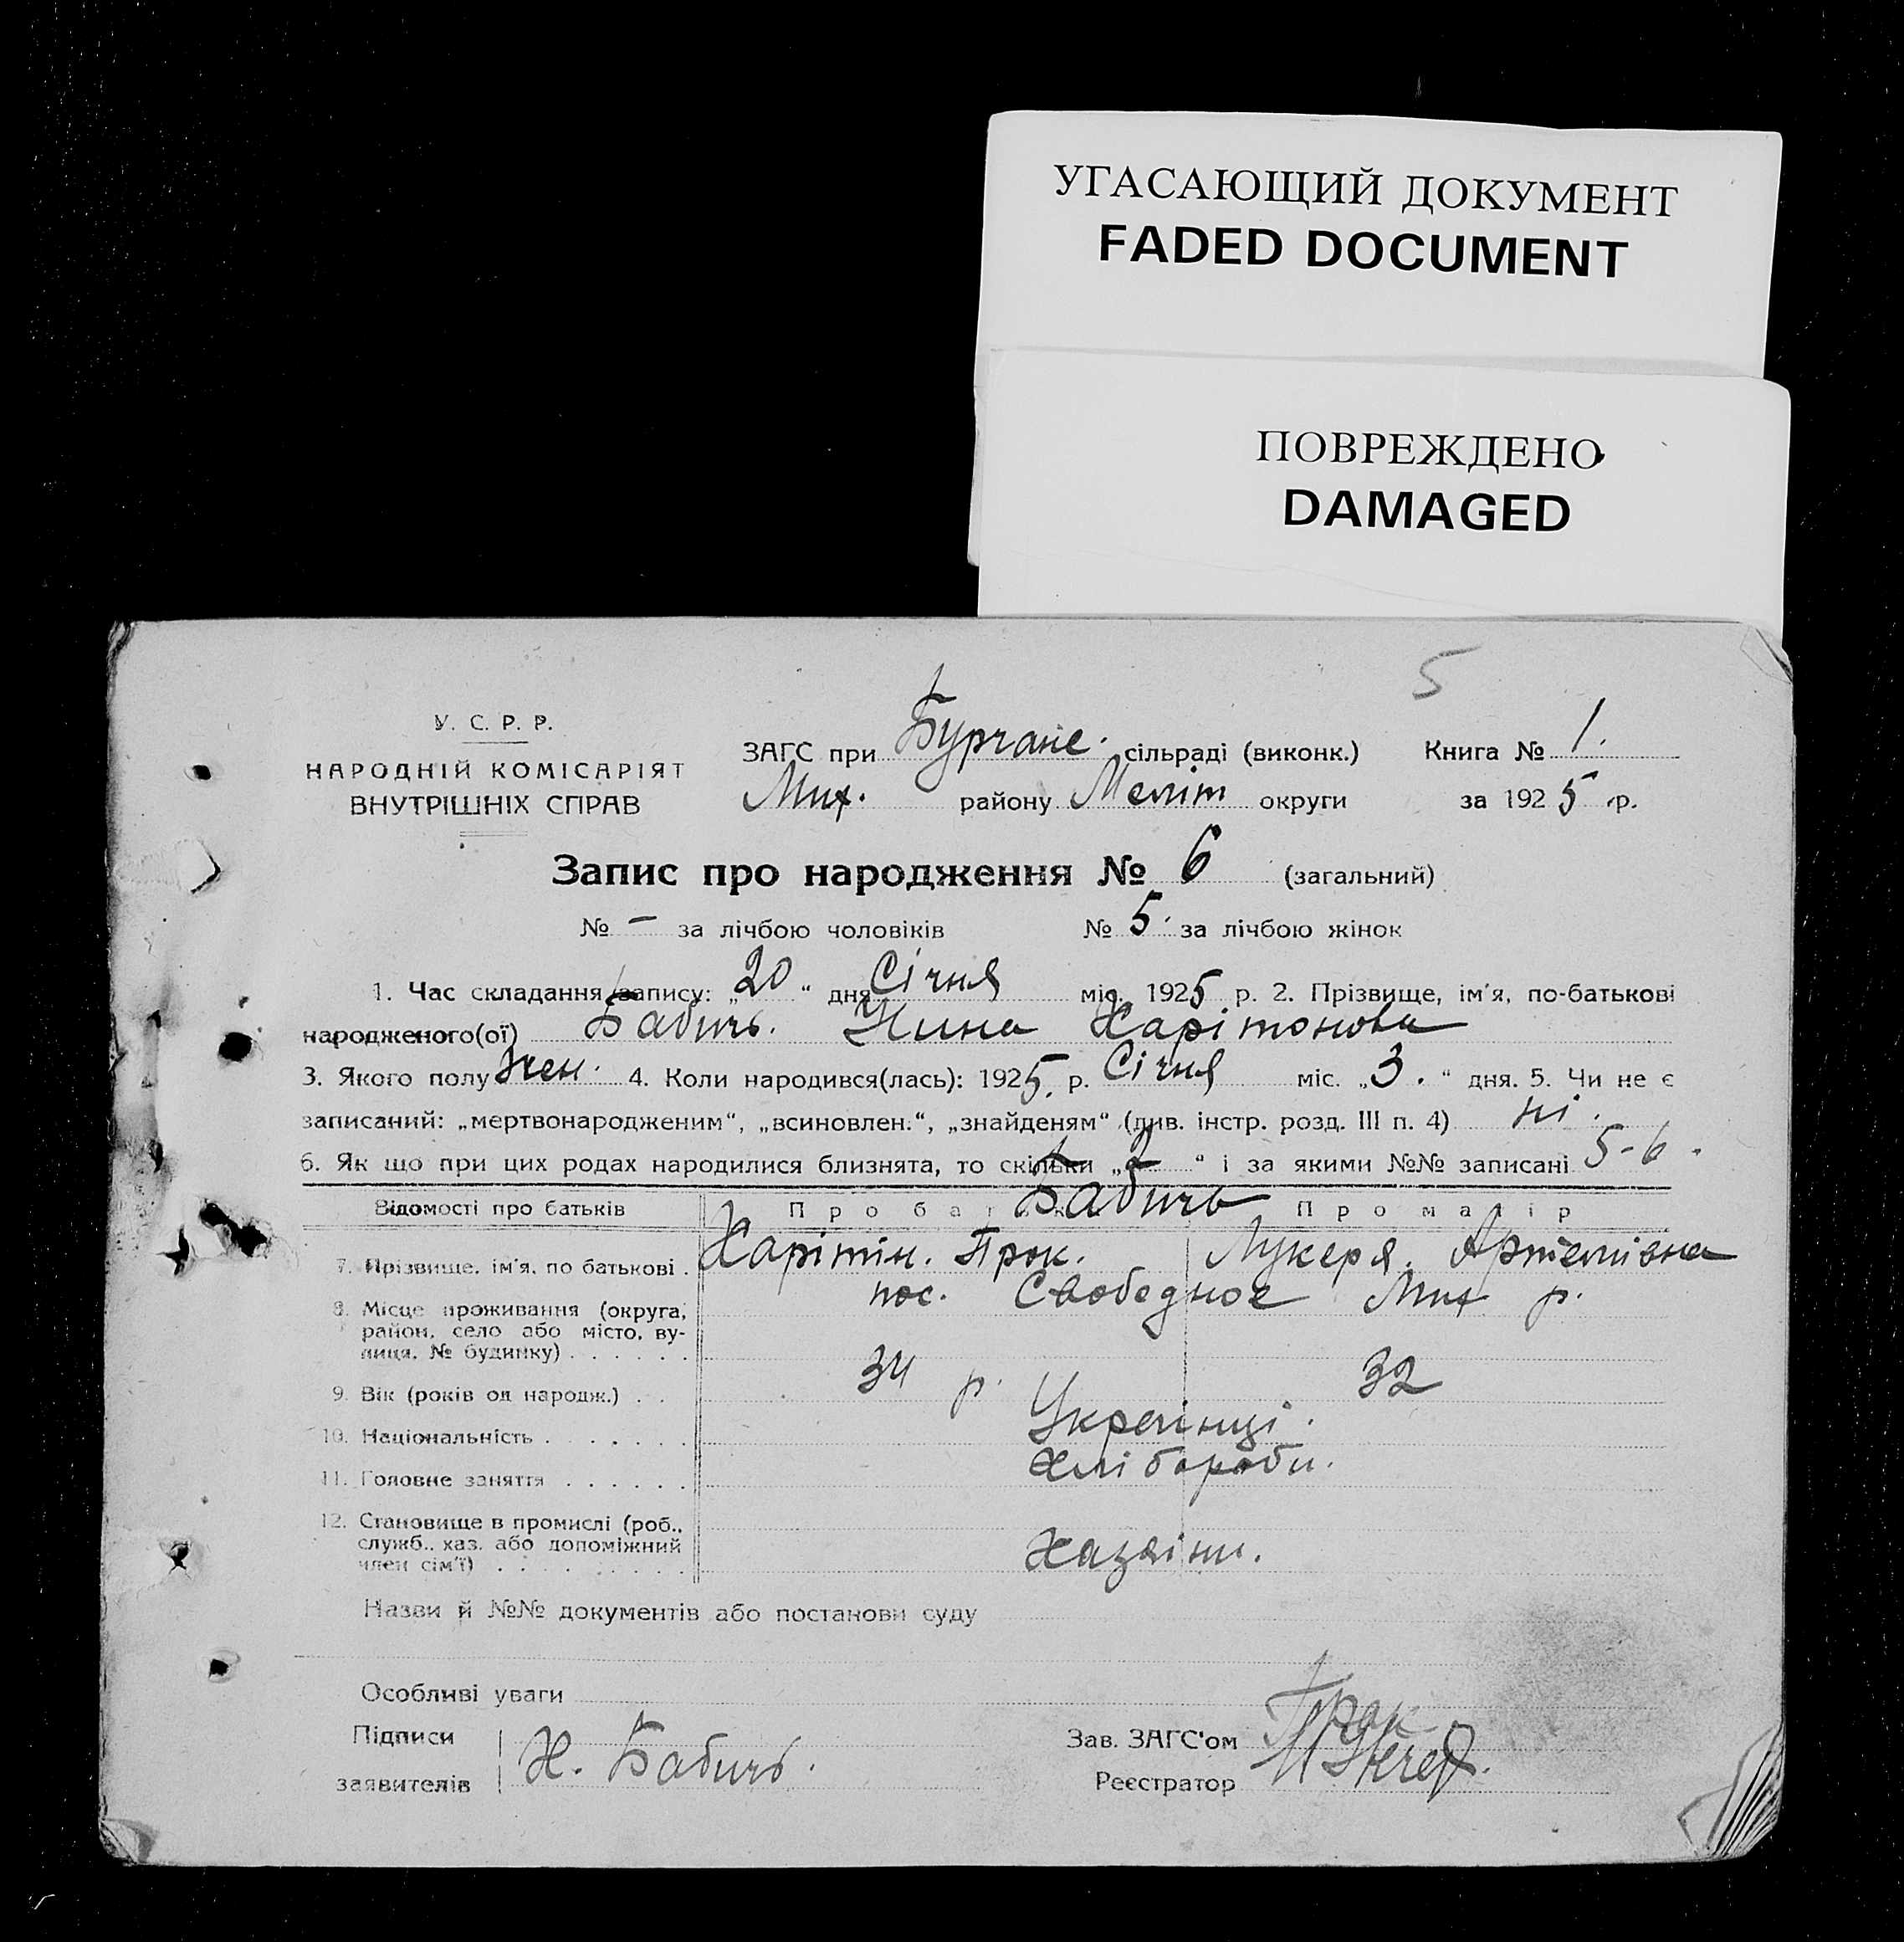 УГАСАЮЩИЙ ДОКУМЕНТ
FADED DOCUMENT
ПОВРЕЖДЕНО
DAMAGED
5
У. С. Р. Р.
НАРОДНІЙ КОМІСАРІЯТ
ВНУТРІШНІХ СПРАВ
ЗАГС при Бургане. сільраді (виконк.) Книга № 1.
Мих. району Меліт округи за 1925 р.
Запис про народження № 6 (загальний)
№ — за лічбою чоловіків № 5. за лічбою жінок
1. Час складання запису: „20“ дня Січня міс. 1925 р. 2. Прізвище, ім'я, по-батькові
народженого(ої) Бабичь. Нина Харітонова
3. Якого полу жен. 4. Коли народився(лась): 1925. р. Січня міс. „3.“ дня. 5. Чи не є
записаний: „мертвонародженим“, „всиновлен.“, „знайденям“ (див. інстр. розд. III п. 4) ні.
6. Як що при цих родах народилися близнята, то скільки „2“ і за якими №№ записані 5-6.
Відомості про батьків Про батька Про матір
Бабичь
7. Прізвище, ім'я, по батькові. Харітін. Прок. Лукеря. Артемівна
8. Місце проживання (округа, пос. Свободное Мих р.
район, село або місто, ву-
лиця, № будинку) . . . . . .
9. Вік (років од народж.) . . 34 р. 32
10. Національність . . . . . . . Украінці.
11. Головне заняття . . . . . . Хлібороби.
12. Становище в промислі (роб.,
служб., хаз. або допоміжний
член сім'ї) . . . . . . . . . Хазяіни.
Назви й №№ документів або постанови суду
Особливі уваги
Підписи
заявителів Х. Бабичь.
Зав. ЗАГС'ом
Реєстратор